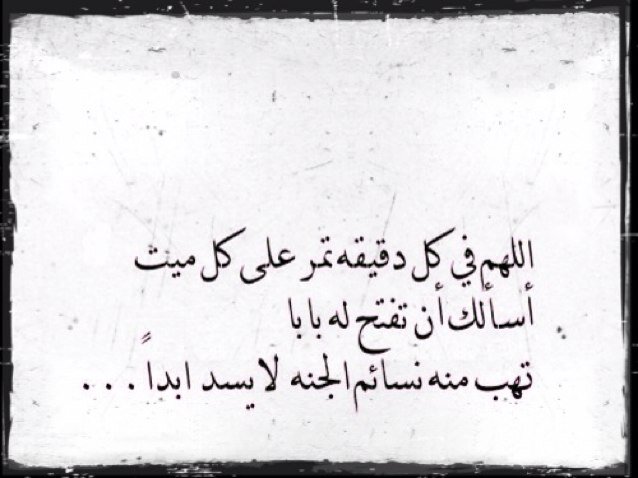 اللهم في كل دقيقه تمر على كل ميت
أسألك أن تفتح له بابا
تهب منه نسائم الجنه لا يسد ابداً . . .